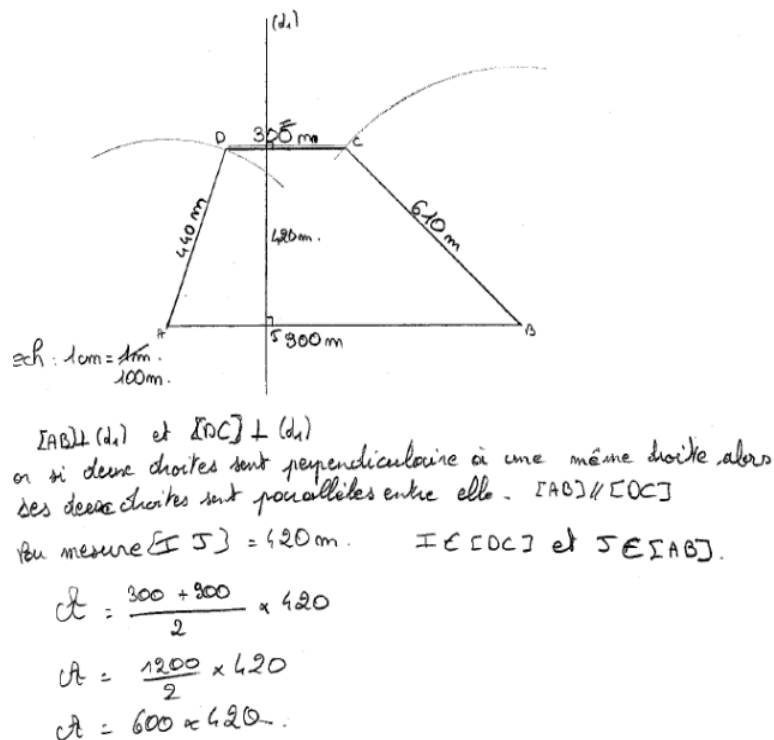 (d₁)
D 300 m C
440 m
610 m
420 m.
A J 900 m B
ech : 1cm = 1m.
100m.
[AB]⊥(d₁) et [DC] ⊥ (d₁)
or si deux droites sont perpendiculaire à une même droite alors
ses deux droites sont parallèles entre elle. [AB]//[DC]
mesure [I J] = 420 m. I ∈ [DC] et J ∈ [AB].
A = 300 + 900 / 2 × 420
A = 1200 / 2 × 420
A = 600 × 420.